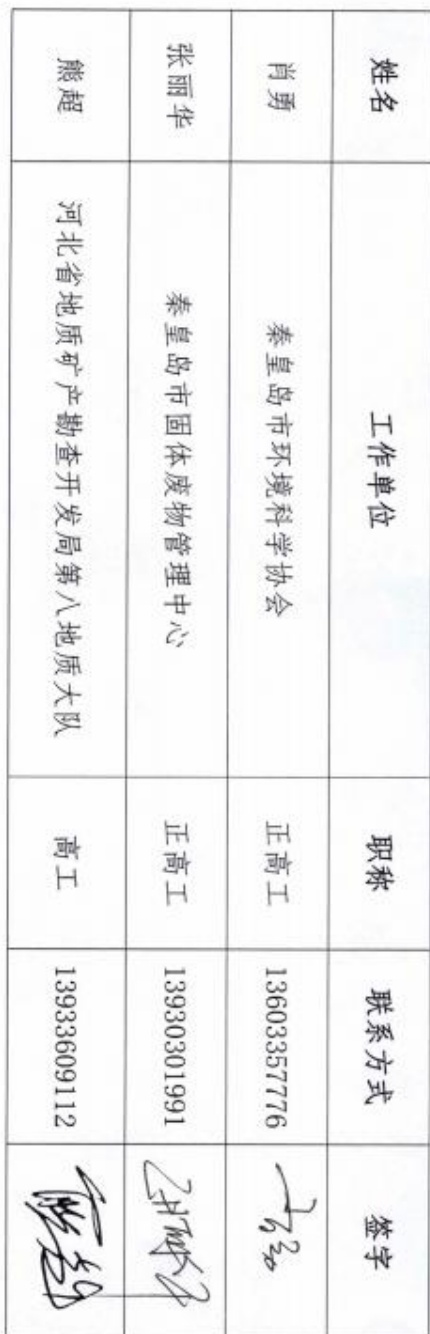 姓名 工作单位 职称 联系方式 签字
肖勇 秦皇岛市环境科学协会 正高工 13603357776
张丽华 秦皇岛市固体废物管理中心 正高工 13930301991
熊超 河北省地质矿产勘查开发局第八地质大队 高工 13933609112 熊超